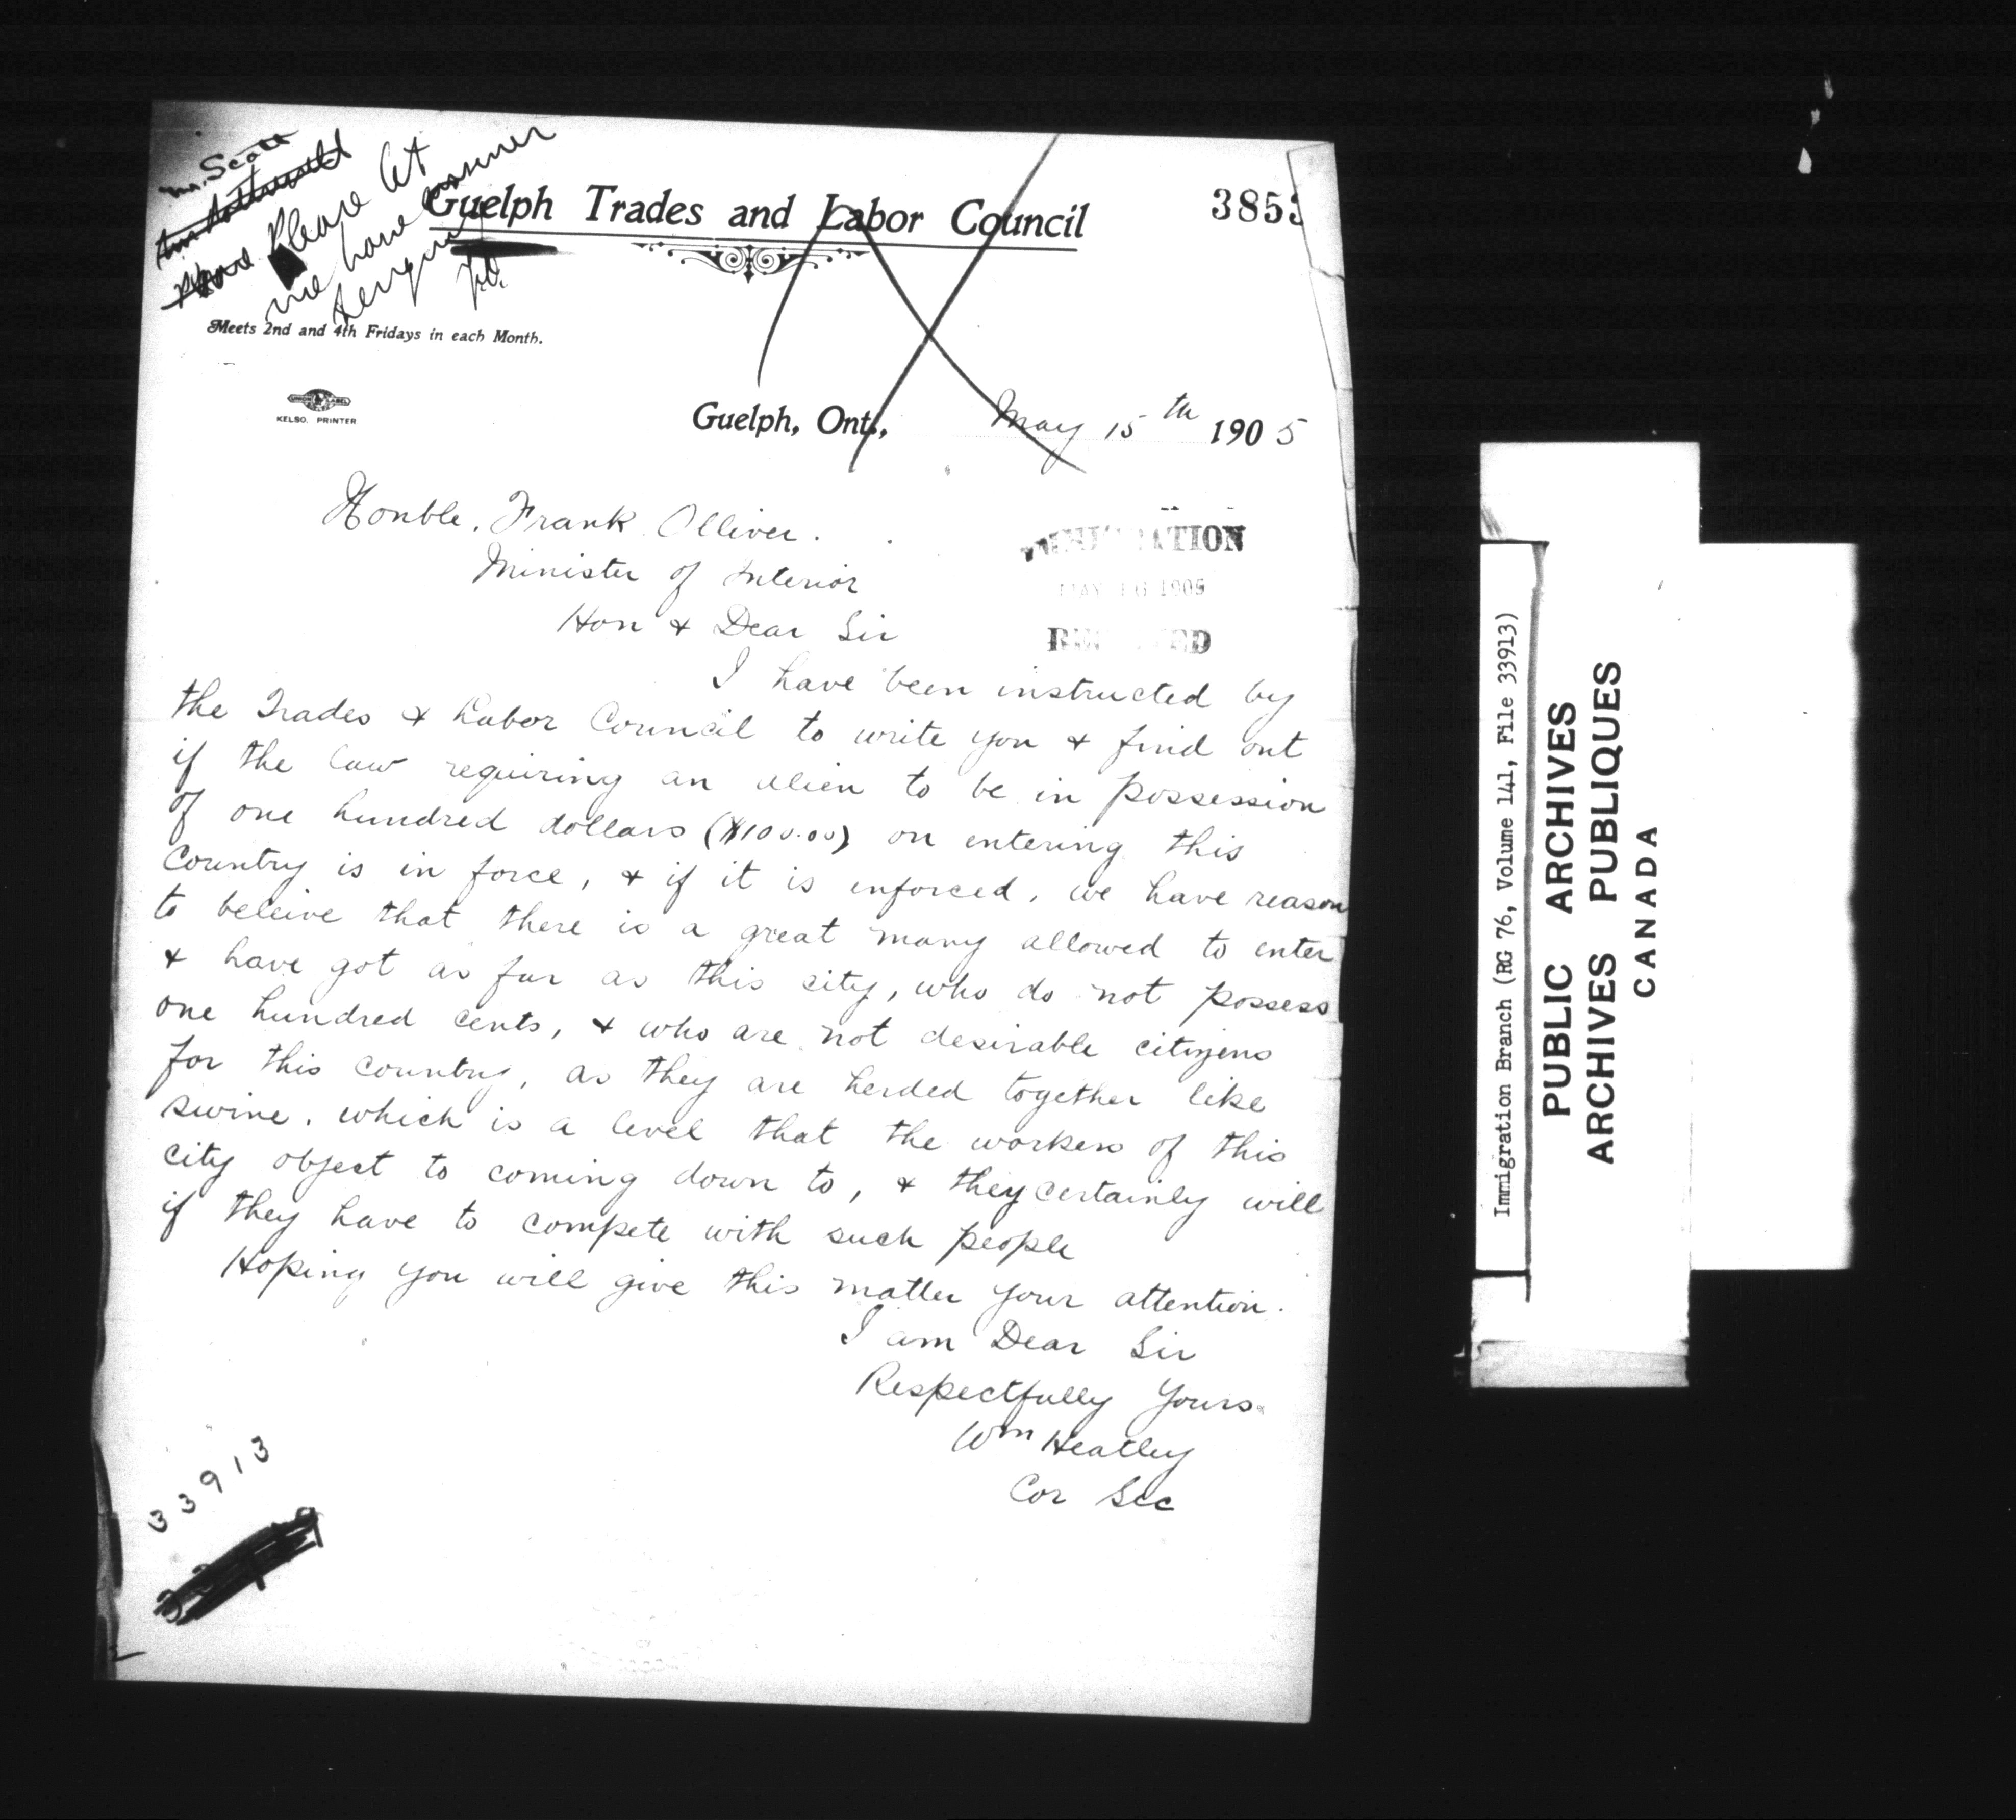 Mr. Scott
Please let
me have answer
F.O.
Guelph Trades and Labor Council
385
Meets 2nd and 4th Fridays in each Month.
UNION LABEL
KELSO, PRINTER
Guelph, Ont., May 15th 1905
Honble. Frank Olliver.
Minister of Interior
Hon & Dear Sir
IMMIGRATION
MAY 16 1905
RECEIVED
I have been instructed by
the Trades & Labor Council to write you & find out
if the law requiring an alien to be in possession
of one hundred dollars ($100.00) on entering this
Country is in force, & if it is enforced, we have reason
to beleive that there is a great many allowed to enter
& have got as far as this city, who do not possess
one hundred cents, & who are not desirable citizens
for this country, as they are herded together like
swine. which is a level that the workers of this
city object to coming down to, & they certainly will
if they have to compete with such people
Hoping you will give this matter your attention.
I am Dear Sir
Respectfully Yours
Wm Heatley
Cor Sec
33913
Immigration Branch (RG 76, Volume 141, File 33913)
PUBLIC ARCHIVES
ARCHIVES PUBLIQUES
CANADA